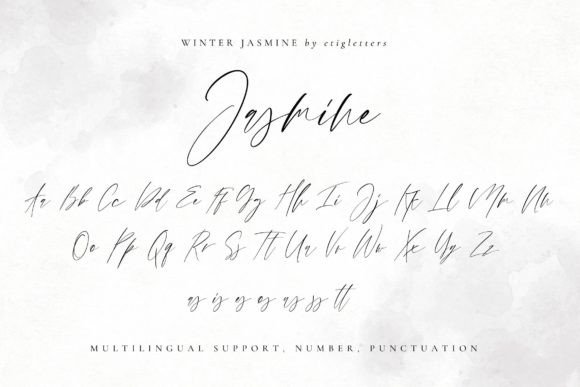 WINTER JASMINE by etigletters
Jasmine
Aa Bb Cc Dd Ee Ff Gg Hh Ii Jj Kk Ll Mm Nn
Oo Pp Qq Rr Ss Tt Uu Vv Ww Xx Yy Zz
as is ys es us ss tt
MULTILINGUAL SUPPORT, NUMBER, PUNCTUATION